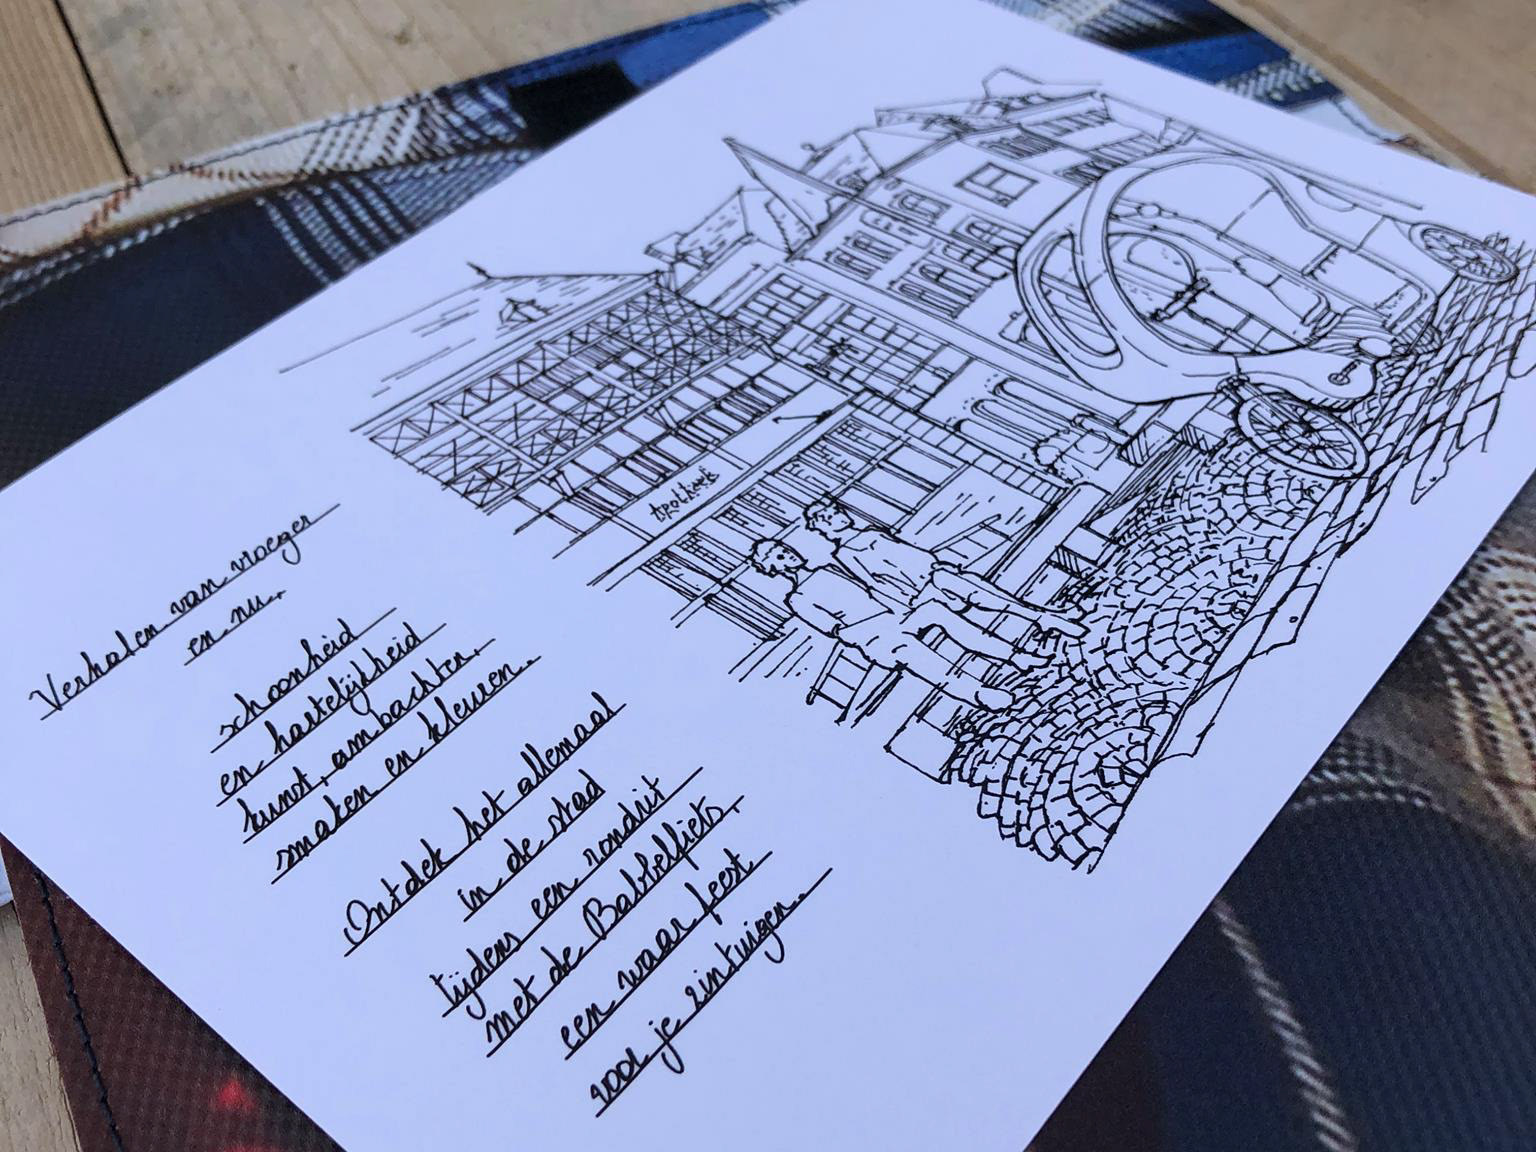 Verhalen van vroeger
en nu.
schoonheid
en hartelijkheid
kunst, ambachten,
smaken en kleuren.
Ontdek het allemaal
in de stad
tijdens een rondrit
met de Babbelfiets,
een waar feest
voor je zintuigen.
Apotheek